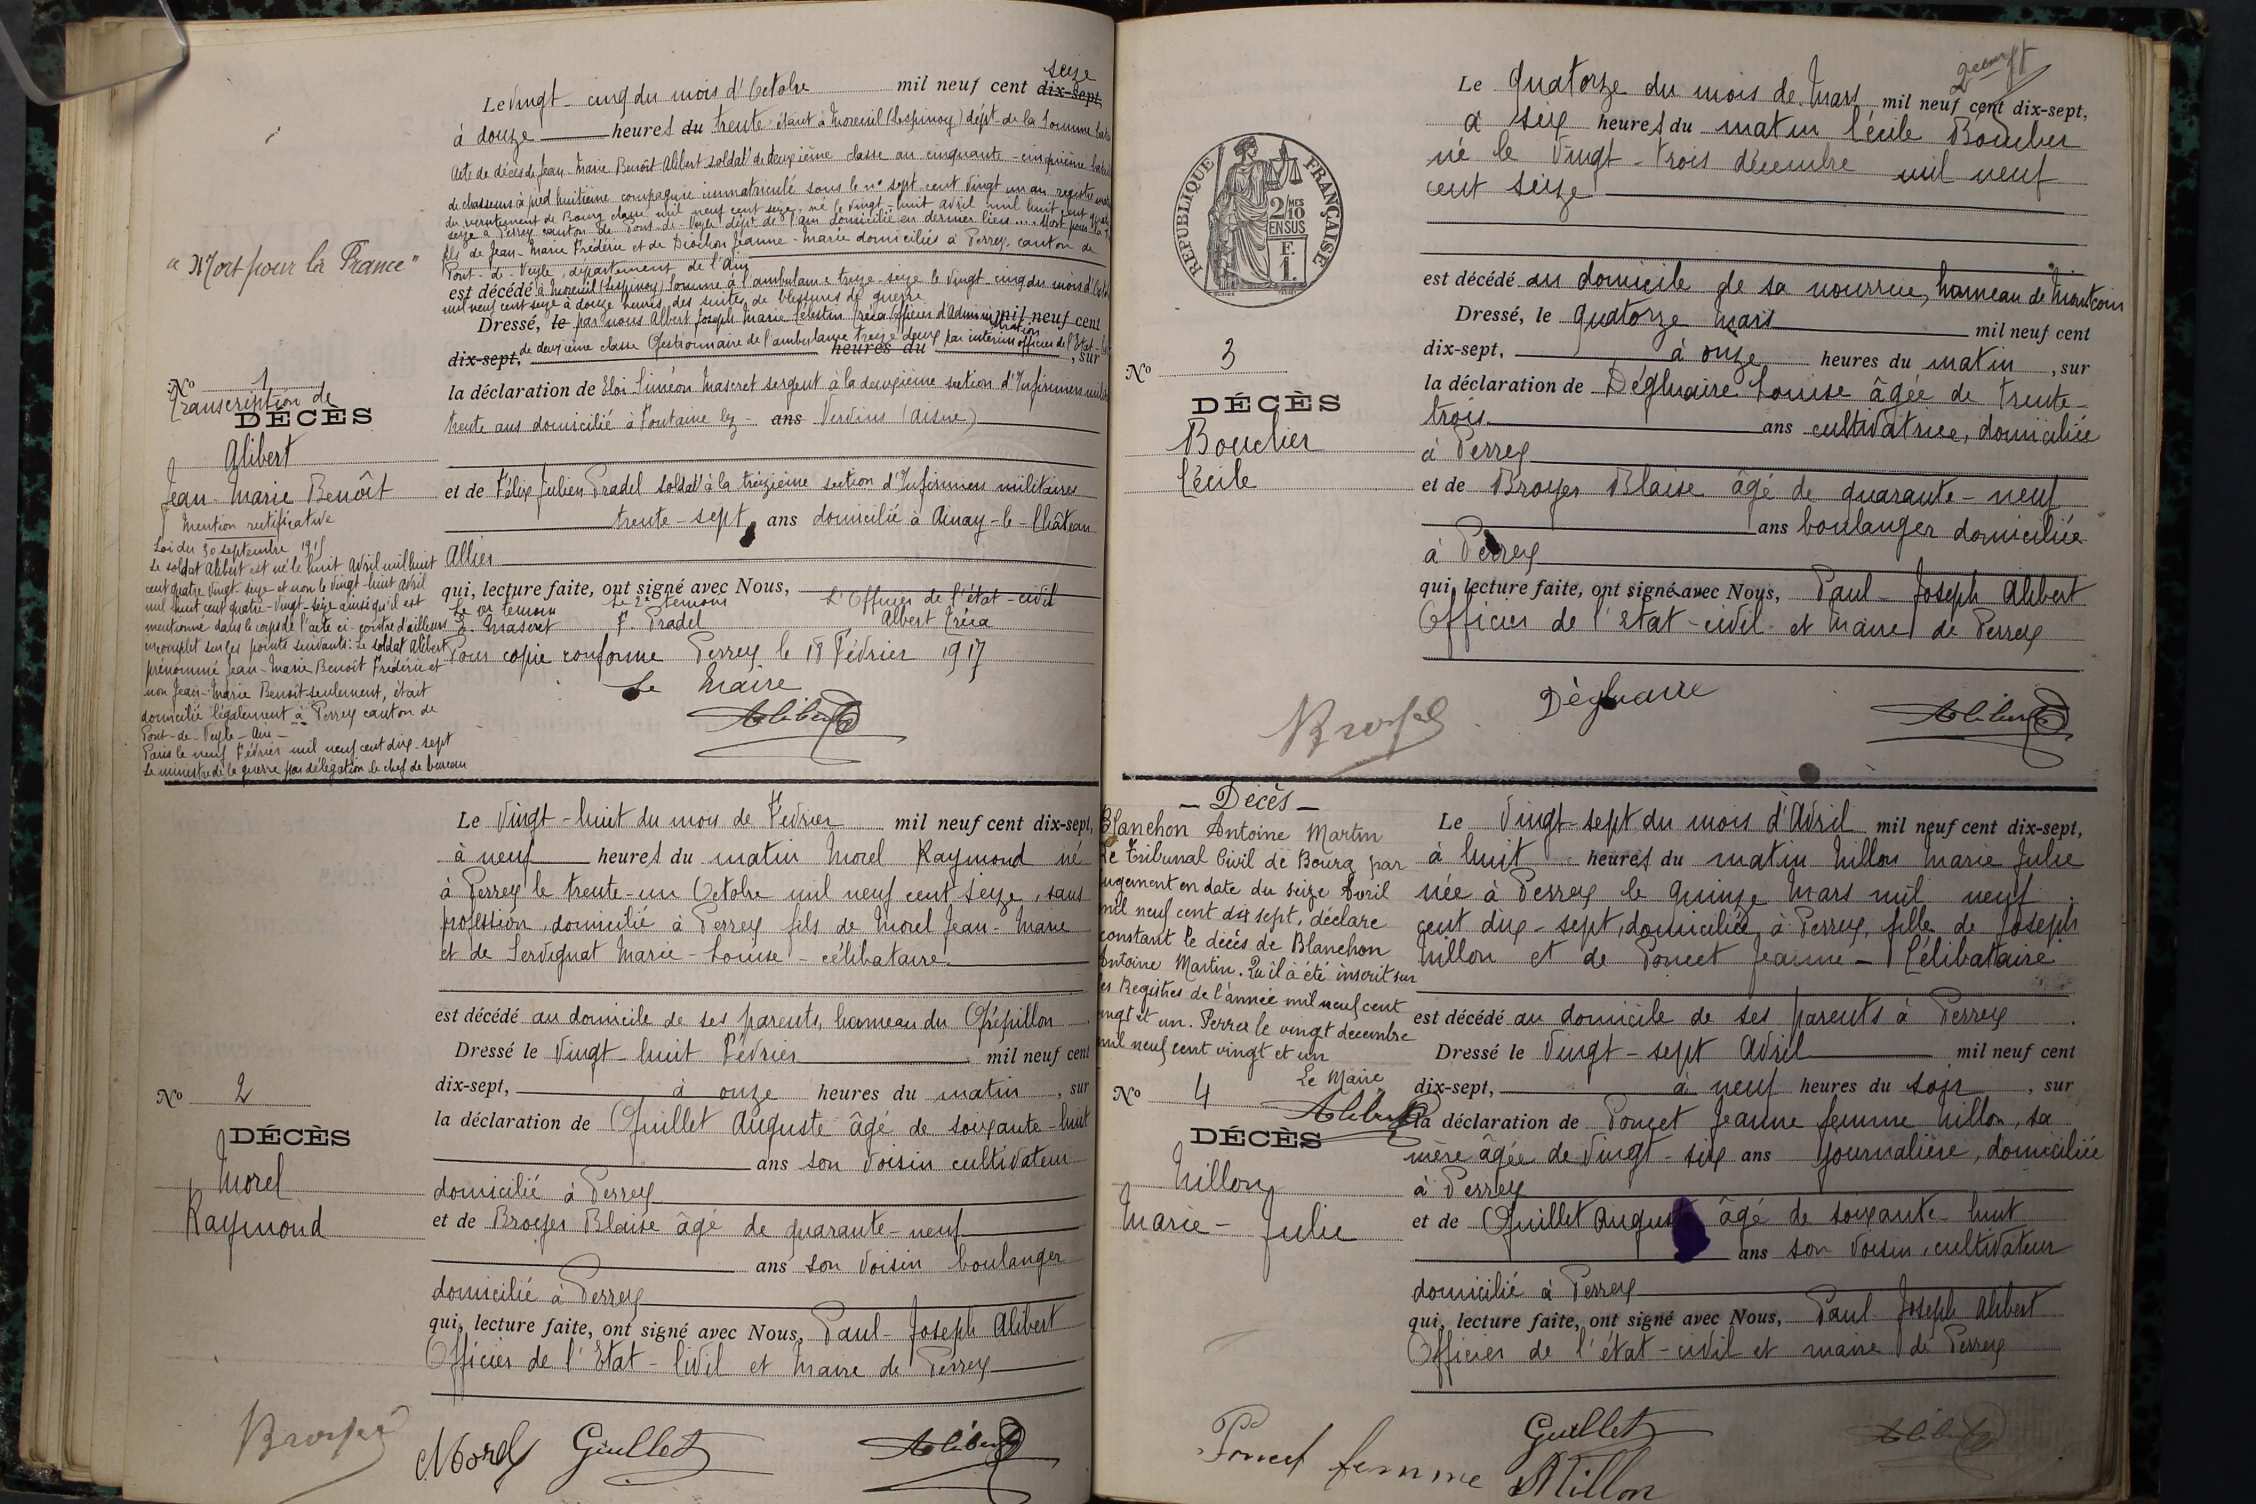 Le vingt-cinq du mois d'Octobre mil neuf cent dix-sept, seize
à douze heures du trente étant à Moreuil (Lespinoy) dépt de la Somme
Acte de décès de Jean-Marie Benoît Alibert soldat de deuxième classe au cinquante-cinquième
de chasseurs à pied huitième compagnie immatriculé sous le n° sept cent vingt un au registre
du recrutement de Bourg classe mil neuf cent seize, né le vingt-huit avril mil huit cent
seize à Perrex canton de Pont-de-Veyle dépt de l'Ain domicilié en dernier lieu .... Mort pour la
fils de Jean-Marie Frédéric et de Diochon Jeanne-Marie domiciliés à Perrex, canton de
Pont-de-Veyle, département de l'Ain
est décédé à Moreuil (Lespinoy) Somme à l'ambulance treize-seize le vingt-cinq du mois d'
mil neuf cent seize à douze heures, des suites de blessures de guerre
Dressé, le par nous Albert Joseph Marie Célestin Officier d'Administration mil neuf cent
dix-sept, de deuxième classe Gestionnaire de l'ambulance treize-deux par intérim officier de l'Etat heures du , sur
la déclaration de Eloi Siméon Mascret sergent à la deuxième section d'Infirmiers
trente ans domicilié à Fontaine lez - ans Vervins (Aisne)
et de Félix Julien Pradel soldat à la treizième section d'Infirmiers militaires
trente-sept ans domicilié à Ainay-le-Château
Allier
qui, lecture faite, ont signé avec Nous,
Le 1er témoin Le 2e témoin L'Officier de l'état-civil
E. Mascret F. Pradel Albert
Pour copie conforme Perrex le 18 Février 1917
Le Maire
Alibert
"Mort pour la France"
N° 1
Transcription de
DÉCÈS
Alibert
Jean-Marie Benoît
Mention rectificative
Loi du 30 septembre 1915
Le soldat Alibert est né le huit Avril mil huit
cent quatre vingt-seize et non le vingt-huit avril
mil huit cent quatre-vingt-seize ainsi qu'il est
mentionné dans le corps de l'acte ci-contre d'ailleurs
incomplet sur les points suivants: Le soldat Alibert
prénommé Jean-Marie Benoît Frédéric et
non Jean-Marie Benoît seulement, était
domicilié légalement à Perrex canton de
Pont-de-Veyle-Ain-
Paris le neuf Février mil neuf cent dix-sept
Le ministre de la guerre par délégation le chef de bureau
Le vingt-huit du mois de Février mil neuf cent dix-sept,
à neuf heures du matin Morel Raymond né
à Perrex le trente-un Octobre mil neuf cent seize, sans
profession, domicilié à Perrex fils de Morel Jean-Marie
et de Servignat Marie-Louise - célibataire
est décédé au domicile de ses parents, hameau du
Dressé le vingt-huit Février mil neuf cent
dix-sept, à onze heures du matin, sur
la déclaration de Guillet Auguste âgé de soixante-huit
ans son voisin cultivateur
domicilié à Perrex
et de Broyer Blaise âgé de quarante-neuf
ans son voisin boulanger
domicilié à Perrex
qui, lecture faite, ont signé avec Nous, Paul-Joseph Alibert
Officier de l'Etat-Civil et Maire de Perrex
N° 2
DÉCÈS
Morel
Raymond
Broyer Morel Guillet Alibert
2eme ft
Le Quatorze du mois de Mars mil neuf cent dix-sept,
à six heures du matin Cécile Boucher
né le vingt-trois décembre mil neuf
cent seize
RÉPUBLIQUE FRANÇAISE
2/10 MES EN SUS
F. 1.
est décédé au domicile de sa nourrice, hameau de Montcoin
Dressé, le quatorze Mars mil neuf cent
dix-sept, à onze heures du matin, sur
la déclaration de Dégluaire Louise âgée de trente-
trois ans cultivatrice, domiciliée
à Perrex
et de Broyer Blaise âgé de quarante-neuf
ans boulanger domiciliée
à Perrex
qui, lecture faite, ont signé avec Nous, Paul-Joseph Alibert
Officier de l'Etat-civil et Maire de Perrex
N° 3
DÉCÈS
Bouclier
Cécile
Broyer Dégluaire Alibert
- Décès -
Blanchon Antoine Martin
Le Tribunal Civil de Bourg par
jugement en date du seize Avril
mil neuf cent dix sept, déclare
constant le décès de Blanchon
Antoine Martin. Qu'il a été inscrit sur
les Registres de l'année mil neuf cent
vingt et un. Perrex le vingt decembre
mil neuf cent vingt et un
Le Maire
Alibert
Le vingt-sept du mois d'Avril mil neuf cent dix-sept,
à huit heures du matin Nillon Marie Julie
née à Perrex le quinze Mars mil neuf
cent dix-sept, domiciliée à Perrex, fille de Joseph
Nillon et de Poncet Jeanne - Célibataire
est décédé au domicile de ses parents à Perrex.
Dressé le vingt-sept Avril mil neuf cent
dix-sept, à neuf heures du soir, sur
la déclaration de Poncet Jeanne femme Nillon, sa
mère âgée de vingt-six ans journalière, domiciliée
à Perrex
et de Guillet Auguste âgé de soixante-huit
ans son voisin, cultivateur
domicilié à Perrex
qui, lecture faite, ont signé avec Nous, Paul-Joseph Alibert
Officier de l'état-civil et maire de Perrex
N° 4
DÉCÈS
Nillon
Marie-Julie
Poncet femme Nillon Guillet Alibert